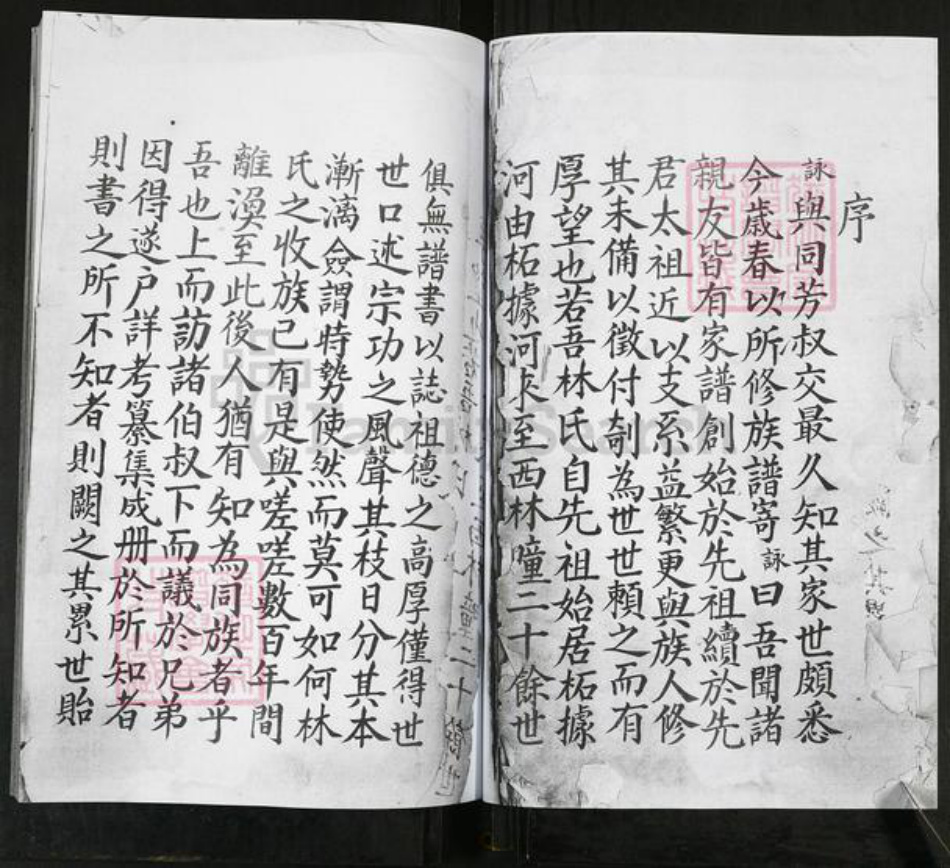 序
詠與同芳叔交最久知其家世頗悉
今歲春以所修族譜寄詠曰吾聞諸
親友皆有家譜創始於先祖續於先
君太祖近以支系益繁更與族人修
其未備以徵付剞為世世賴之而有
厚望也若吾林氏自先祖始居柘據
河由柘據河末至西林疃二十餘世
俱無譜書以誌祖德之高厚僅得世
世口述宗功之風聲其枝日分其本
漸漓僉謂時勢使然而莫可如何林
氏之收族已有是與嗟嗟數百年間
離渙至此後人猶有知為同族者乎
吾也上而訪諸伯叔下而議於兄弟
因得遂户詳考纂集成册於所知者
則書之所不知者則闕之其累世貽
FamilySearch